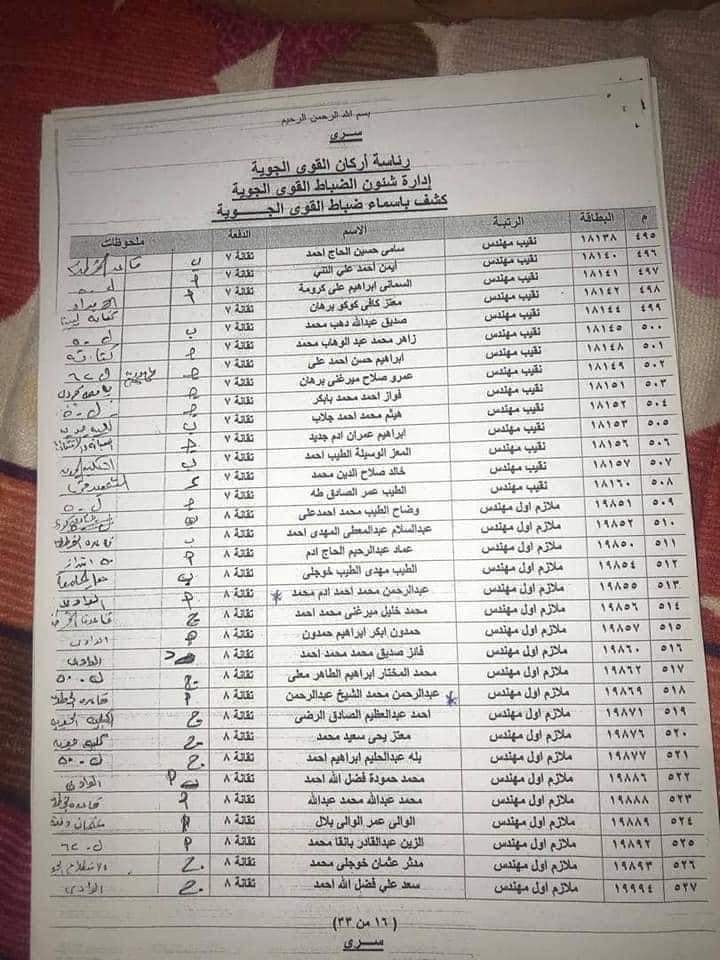 بسم الله الرحمن الرحيم
سرى
رئاسة أركان القوى الجوية
إدارة شئون الضباط القوى الجوية
كشف باسماء ضباط القوى الجـــــوية
م البطاقة الرتبة الاسم الدفعة ملحوظات
٤٩٥ ١٨١٣٨ نقيب مهندس سامى حسين الحاج احمد تقانة ٧ ب
٤٩٦ ١٨١٤٠ نقيب مهندس أيمن أحمد علي التني تقانة ٧
٤٩٧ ١٨١٤١ نقيب مهندس السمانى ابراهيم على كرومة تقانة ٧
٤٩٨ ١٨١٤٢ نقيب مهندس معتز كافى كوكو برهان تقانة ٧
٤٩٩ ١٨١٤٤ نقيب مهندس صديق عبدالله دهب محمد تقانة ٧
٥٠٠ ١٨١٤٥ نقيب مهندس زاهر محمد عبد الوهاب محمد تقانة ٧
٥٠١ ١٨١٤٨ نقيب مهندس ابراهيم حسن احمد على تقانة ٧
٥٠٢ ١٨١٤٩ نقيب مهندس عمرو صلاح ميرغنى برهان تقانة ٧
٥٠٣ ١٨١٥١ نقيب مهندس فواز احمد محمد بابكر تقانة ٧
٥٠٤ ١٨١٥٢ نقيب مهندس هيثم محمد احمد جلاب تقانة ٧
٥٠٥ ١٨١٥٣ نقيب مهندس ابراهيم عمران ادم جديد تقانة ٧
٥٠٦ ١٨١٥٦ نقيب مهندس المعز الوسيلة الطيب احمد تقانة ٧
٥٠٧ ١٨١٥٧ نقيب مهندس خالد صلاح الدين محمد تقانة ٧
٥٠٨ ١٨١٦٠ نقيب مهندس الطيب عمر الصادق طه تقانة ٧
٥٠٩ ١٩٨٥١ ملازم اول مهندس وضاح الطيب محمد احمدعلى تقانة ٨
٥١٠ ١٩٨٥٢ ملازم اول مهندس عبدالسلام عبدالمعطى المهدى احمد تقانة ٨
٥١١ ١٩٨٥٠ ملازم اول مهندس عماد عبدالرحيم الحاج ادم تقانة ٨
٥١٢ ١٩٨٥٤ ملازم اول مهندس الطيب مهدى الطيب خوجلى تقانة ٨
٥١٣ ١٩٨٥٥ ملازم اول مهندس عبدالرحمن محمد احمد ادم محمد تقانة ٨ الوادى
٥١٤ ١٩٨٥٦ ملازم اول مهندس محمد خليل ميرغنى محمد احمد تقانة ٨ ج
٥١٥ ١٩٨٥٧ ملازم اول مهندس حمدون ابكر ابراهيم حمدون تقانة ٨ الوادى
٥١٦ ١٩٨٦٠ ملازم اول مهندس فائز صديق محمد محمد احمد تقانة ٨ الوادى
٥١٧ ١٩٨٦٢ ملازم اول مهندس محمد المختار ابراهيم الطاهر معلى تقانة ٨ ج
٥١٨ ١٩٨٦٩ ملازم اول مهندس عبدالرحمن محمد الشيخ عبدالرحمن تقانة ٨
٥١٩ ١٩٨٧١ ملازم اول مهندس احمد عبدالعظيم الصادق الرضى تقانة ٨ ج
٥٢٠ ١٩٨٧٦ ملازم اول مهندس معتز يحى سعيد محمد تقانة ٨ ج
٥٢١ ١٩٨٧٧ ملازم اول مهندس بله عبدالحليم ابراهيم احمد تقانة ٨ ج
٥٢٢ ١٩٨٨٦ ملازم اول مهندس محمد حمودة فضل الله احمد تقانة ٨ الوادى
٥٢٣ ١٩٨٨٨ ملازم اول مهندس محمد عبدالله محمد عبدالله تقانة ٨
٥٢٤ ١٩٨٨٩ ملازم اول مهندس الوالى عمر الوالى بلال تقانة ٨
٥٢٥ ١٩٨٩٢ ملازم اول مهندس الزين عبدالقادر بانقا محمد تقانة ٨
٥٢٦ ١٩٨٩٣ ملازم اول مهندس مدثر عثمان خوجلى محمد تقانة ٨ ج
٥٢٧ ١٩٩٩٤ ملازم اول مهندس سعد علي فضل الله احمد تقانة ٨ ج الوادى
(١٦ من ٣٣)
سرى